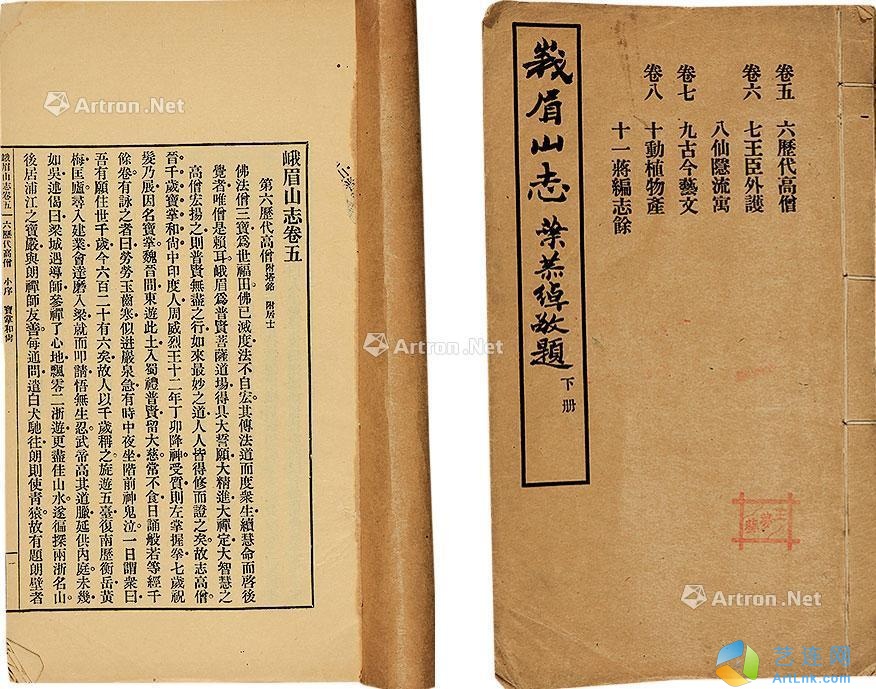 峩眉山志
葉恭綽敬題
下册
卷五 六歷代高僧
卷六 七王臣外護
八仙隱流寓
卷七 九古今藝文
卷八 十動植物產
十一蔣編志餘
峨眉山志卷五
第六歷代高僧附塔銘 附居士
佛法僧三寶爲世福田。佛已滅度法不自宏。其傳法道而度衆生續慧命而啓後
覺者。唯僧是賴耳。峨眉爲普賢菩薩道場得具大誓願大精進大禪定大智慧之
高僧宏揚之則普賢無盡之行如來最妙之道人人皆得修而證之矣。故志高僧。
晉。千歲寶掌和尚中印度人周威烈王十二年丁卯降神受質則左掌握拳七歲祝
髮乃展因名寶掌。魏晉間東遊此土入蜀禮普賢留大慈。常不食日誦般若等經千
餘卷。有詠之者曰。勞勞玉齒寒似迸巖泉急有時中夜坐階前神鬼泣。一日謂衆曰。
吾有願住世千歲今六百二十有六矣。故人以千歲稱之。旋遊五臺復南歷衡岳黃
梅匡廬。尋入建業會達磨入梁就而叩請悟無生忍。武帝高其道臘延供內庭。未幾
如吳。述偈曰。梁城遇導師參禪了心地飄零二浙遊更盡佳山水。遂徧探兩浙名山。
後居浦江之寶嚴與朗禪師友善。每通問遣白犬馳往。朗則使青猿。故有題朗壁者
峨眉山志卷五 六歷代高僧 小序 寶掌和尚
一
王
夢
Artron.Net
Artron.Net
Artron.Net
Artron.Net
艺连网
ArtLink.com